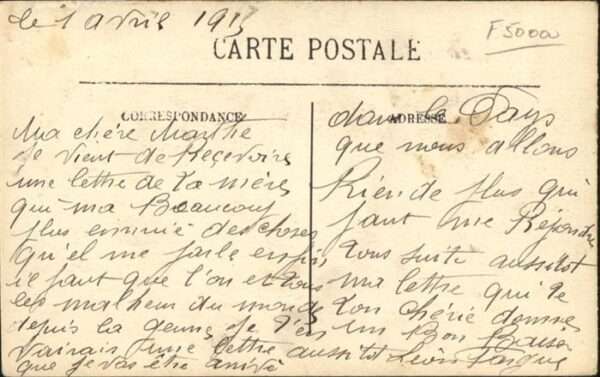 le 1 avril 1915
F5000
CARTE POSTALE
CORRESPONDANCE
Ma chère Marthe
Je vient de Reçevoire
une lettre de ta mère
qui ma Beaucoup
plus ennuié des choses
qu'el me parle enfin
il faut que l'on et tous
les malheur du monde
depuis la geurre Je
vairais une lettre aussitot
que je vas être arrivé
ADRESSE
dans le Pays
que nous allons
Rien de plus qui
faut me Répondre
tous suite aussitot
ma lettre qui te
ton chérie donne
un Bon Baiser
Léon